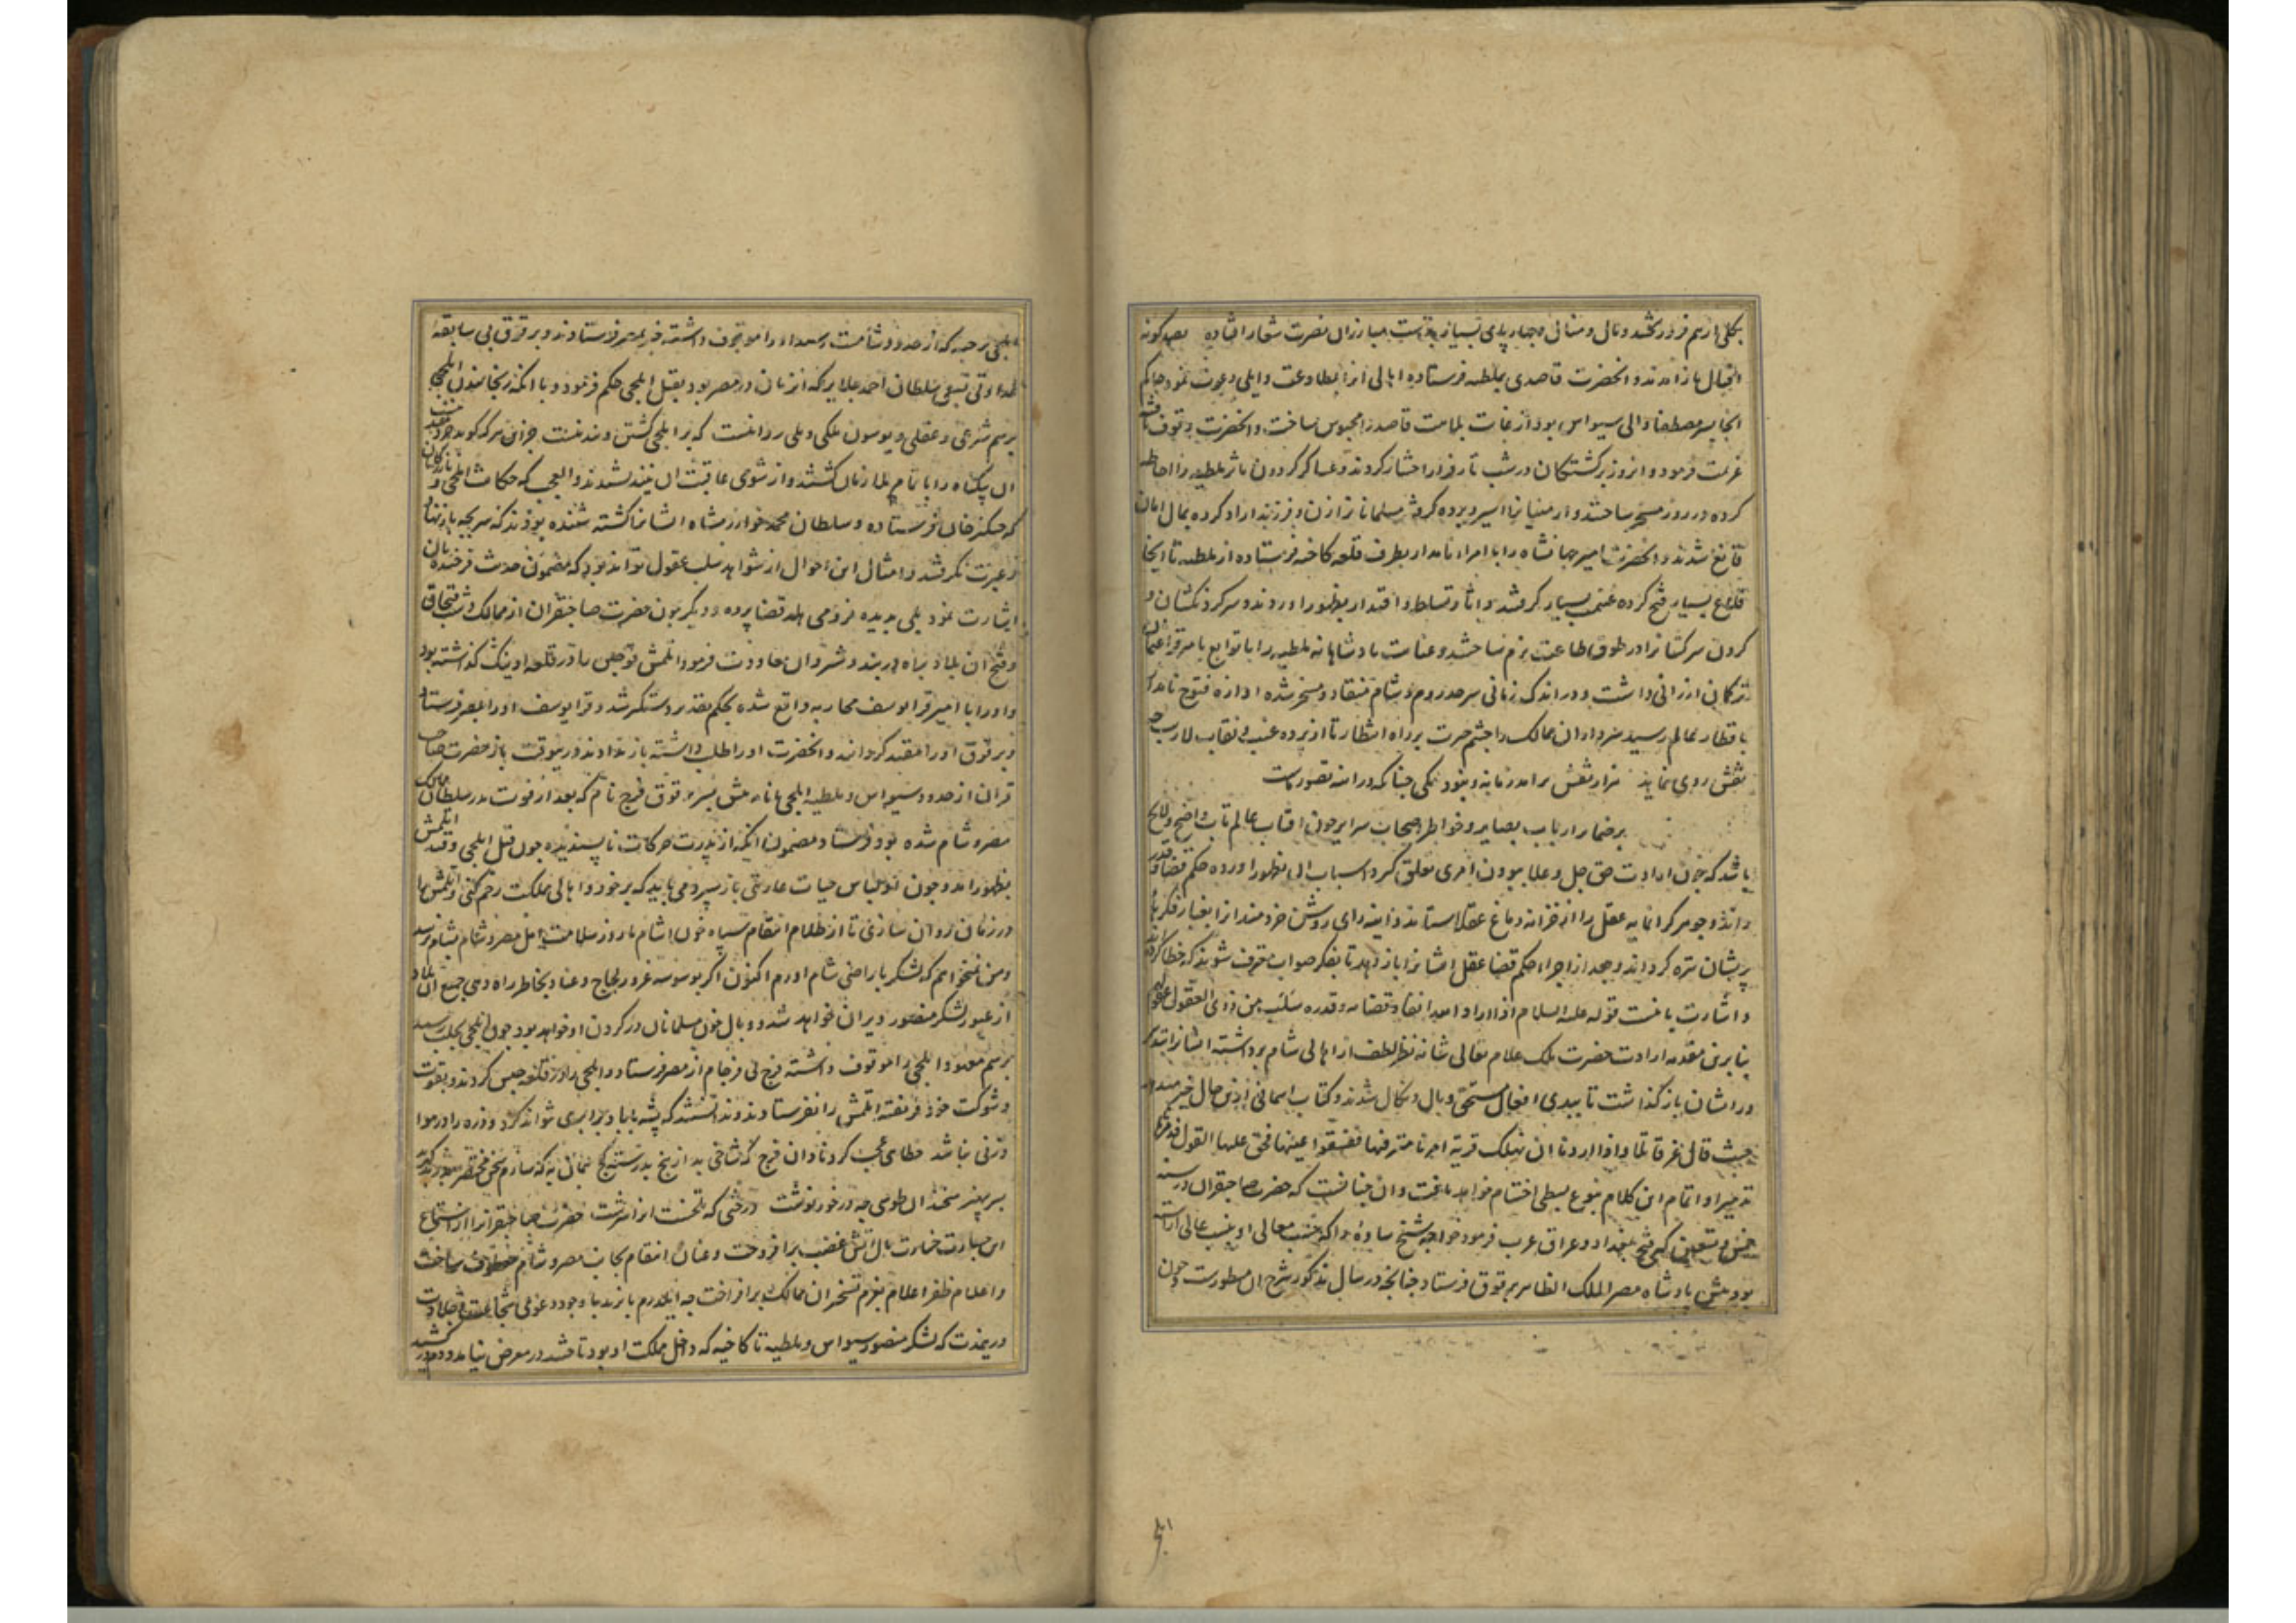 بکلی از هم فرو ریختند و مال و منال و چهارپای بسیار بدست مبارزان نصرت شعار افتاده
جبال باز آمدند و انحضرت قاصدی بملطیه فرستاده اهالی انرا بمطاوعت و ایلی دعوت نمود حاکم
انجا پسر مصطفا والی سیواس بود از غایت ملامت قاصد را محبوس ساخت و انحضرت
عزیمت فرمود و انروز برکشتکان در شب تار فرار اختیار کردند و عساکر کردون ماثر ملطیه را احاطه
کرده در روز مسخر ساختند و ارمنیانرا اسیر و برده کرفته مسلمانانرا از زن و فرزند ازاد کرده بمال امان
قانع شدند و انحضرت امیر جهانشاه را با امراء نامدار بطرف قلعه کاخته فرستاده از ملطیه تا انجا
قلاع بسیار فتح کرده غنیمت بسیار کرفتند و اثار تسلط و اقتدار بظهور اوردند و سرکردنکشان و
کردن سرکشانرا در طوق اطاعت نرم ساختند و عنایت پادشاهانه ملطیه را با توابع بامیر قرا عثمان
ترکمان ارزانی داشت و در اندک زمانی سرحد روم و شام منقاد و مسخر شده اوازه فتوح نامدار
باقطار عالم رسید سرداران ممالک را چشم حیرت بر راه انتظار تا از پرده غیب و نقاب لاریب چه
نقش روی نماید هزار نقش برارد زمانه و نبود یکی چنانکه در اینه تصور ماست
بر ضمایر ارباب بصایر و خواطر اصحاب سرایر چون افتاب عالم تاب واضح و لایح
باشد که چون ارادت حق جل و علا ببودن امری تعلق کیرد اسباب ان بظهور اورده حکم قضا و قدر
راند و جوهر کرانمایه عقل را از خزانه دماغ عقلا ستاند و اینه رای روشن خردمندانرا بغبار فکرهاء
پریشان تیره کرداند و بعد از اجراء حکم قضا عقل ایشانرا باز دهد تا بفکر صواب معترف شوند که خطا کرده
و اشارت باینست قوله علیه السلام اذا اراد الله انفاذ قضائه و قدره سلب من ذوی العقول عقولهم
بنا برین مقدمه ارادت حضرت ملک علام تعالی شانه نظر لطف از اهالی شام برداشته ایشانرا بتدبیر
و رای ایشان باز کذاشت تا ببدی افعال مستحق وبال و نکال شدند و کتاب اسمانی ازین حال خبر میدهد
حیث قال عز قائلا و اذا اردنا ان نهلک قریة امرنا مترفیها ففسقوا فیها فحق علیها القول فدمرناها
تدمیرا و اتمام این کلام بنوع بسطی اختتام خواهد یافت و ان چنانست که حضرت صاحبقران در سنه
خمس و تسعین که فتح بغداد و عراق عرب فرمود خواجه شیخ ساوه را که بحسب معالی و نسب عالی اراسته
بود پیش پادشاه مصر الملک الظاهر برقوق فرستاد چنانچه در سال مذکور شرح ان مسطورست و چون
ایلچی
ایلچی برحبه که از حدود شامست رسید او را موقوف داشته خبر بمصر فرستادند و برقوق بی سابقه
عداوتی بسعی سلطان احمد جلایر که انزمان در مصر بود بقتل ایلچی حکم فرمود و با انکه رنجانیدن ایلچی
برسم شرعی و عقلی و یوسون ملکی و ملی روا نیست که بر ایلچی کشتن و بند نیست
ان بیکناه را با تمام ملازمان کشتند و از شومی عاقبت ان نیندیشیدند و العجب که حکایت ایلچی و بازرکانان
که چنکیزخان فرستاده و سلطان محمد خوارزمشاه ایشانرا کشته شنیده بودند که سر بچه باز نهاد
و عبرت نکرفتند و امثال این احوال از شواهد سلب عقول تواند بود که مضمون حدیث فرخنده بان
اشارت نمود بلی بدیده فرو می هلد قضا پرده و دیکر چون حضرت صاحبقران از ممالک دشت قبچاق
و فتح ان بلاد براه دربند و شروان معاودت فرمود اتلمش قوجین را در قلعه اونیک کذاشته بود
و او را با امیر قرا یوسف محاربه واقع شده بحکم تقدیر دستکیر شد و قرا یوسف او را بمصر فرستاد
و برقوق او را مقید کردانید و انحضرت او را طلب داشته باز ندادند درینوقت باز حضرت صاحب
قران از حدود سیواس و ملطیه ایلچی با نامه پیش پسر برقوق فرج نام که بعد از فوت پدر سلطان ممالک
مصر و شام شده بود فرستاد مضمون انکه از پدرت حرکات ناپسندیده چون قتل ایلچی و قید اتلمش
بظهور امد و چون او لباس حیات عاریتی باز سپرد می باید که بر خود و اهالی مملکت رحم کنی و اتلمش را
در زمان روان سازی تا از ظلام انتقام سپاه خون اشام ما روز سلامت اهل مصر و شام بشام نرسد
و من نمیخواهم که لشکر باراضی شام اورم اکنون اکر بوسوسه غرور لجاج و عناد بخاطر راه دهی جمیع ان بلاد
از عبور لشکر منصور ویران خواهد شد و وبال خون مسلمانان در کردن او خواهد بود چون ایلچی بحلب رسید
برسم معهود ایلچی را موقوف داشته فرج بی فرجام از مصر فرستاد و ایلچی را در قلعه حبس کردند و بقوت
و شوکت خود فریفته اتلمش را نفرستادند و ندانستند که پشه با باد برابری نتواند کرد و ذره را در هوا
وزنی نباشد خطای عجب کرد نادان فرج که شاخی بد از بیخ بد رسته کج
سر بهتر سخندان طوسی چه در خور نوشت درختی که تلخست انرا سرشت حضرت صاحبقرانرا از استماع
این جسارت خسارت مال اتش غضب برافروخت و عنان انتقام بجانب مصر و شام معطوف ساخت
و اعلام ظفر اعلام بعزم تسخیر ان ممالک برافراخت چه ایلدرم بایزید با وجود دعوی شجاعت و جلادت
درینمدت که لشکر منصور سیواس و ملطیه تا کاخته که داخل مملکت او بود تاختند در معرض نیامد و دم در کشید